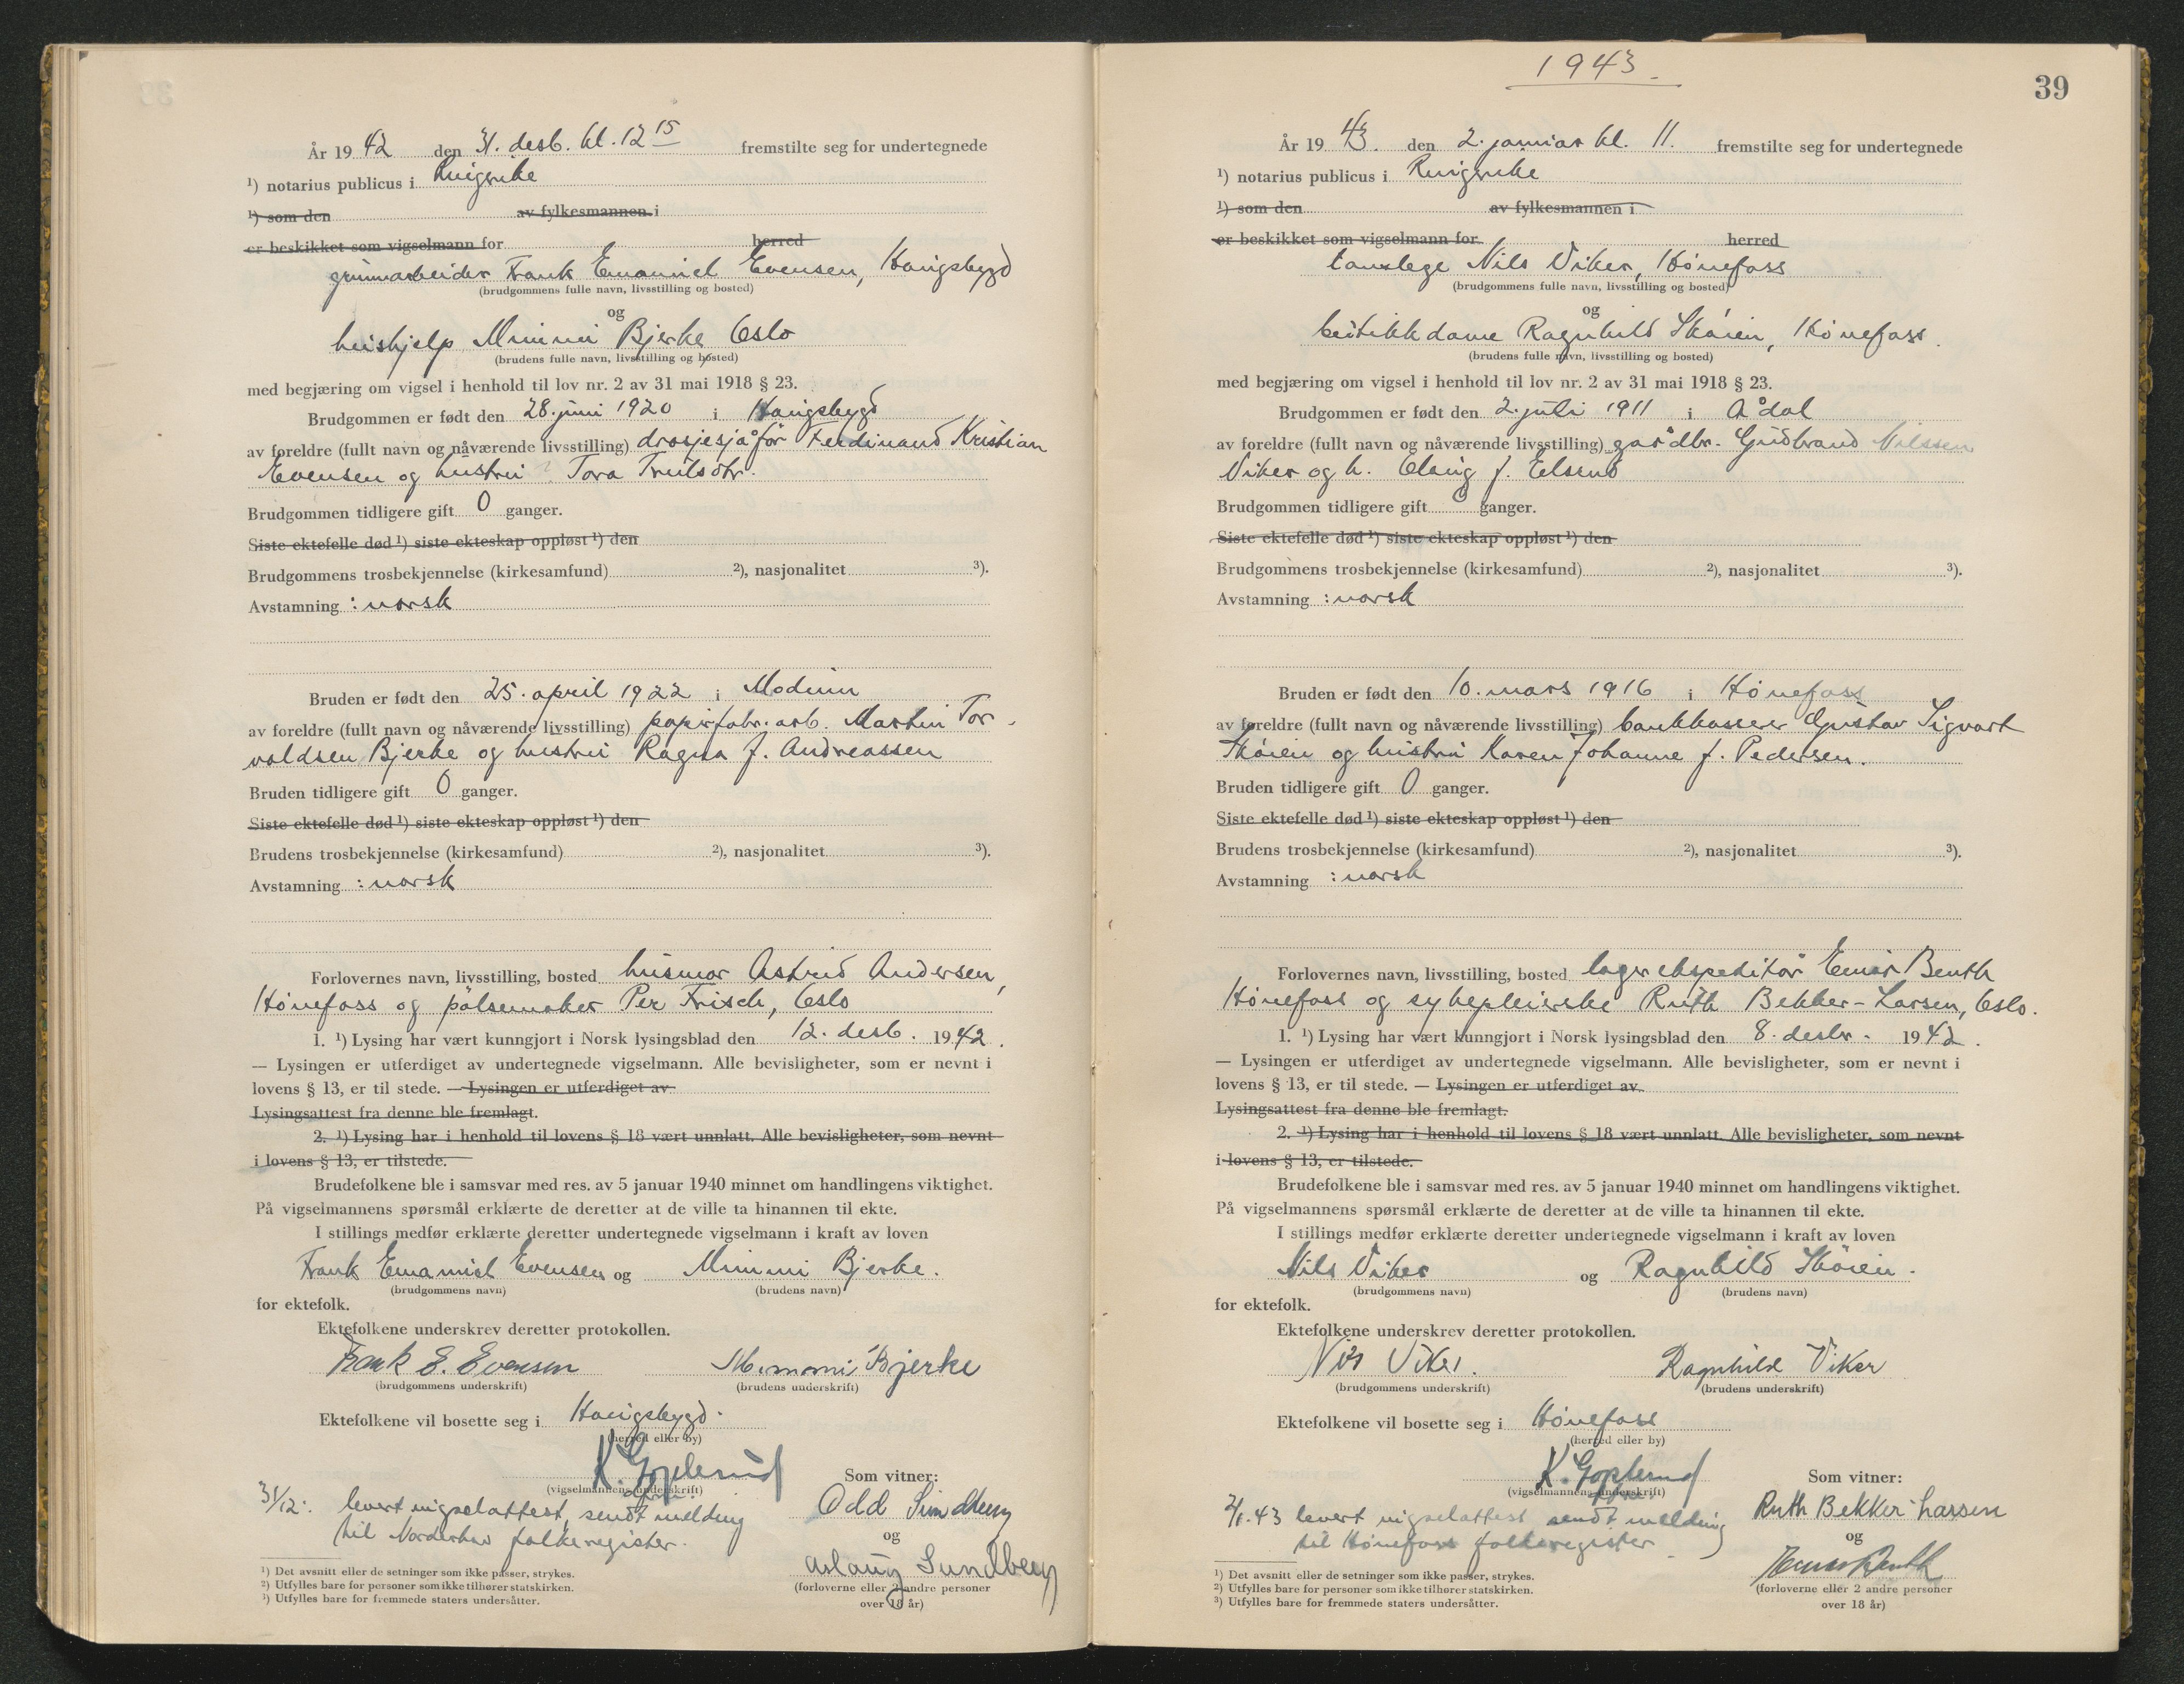 År 19 42 den 31. desb. kl. 12 15 fremstilte seg for undertegnede
¹) notarius publicus i Ringerike
¹) som den av fylkesmannen i
er beskikket som vigselmann for herred
Frank Emanuel Evensen, Haugsbygd
(brudgommens fulle navn, livsstilling og bosted)
og
hushjelp Mimmi Bjerke Oslo
(brudens fulle navn, livsstilling og bosted)
med begjæring om vigsel i henhold til lov nr. 2 av 31 mai 1918 § 23.
Brudgommen er født den 28. juni 1920 i Haugsbygd
av foreldre (fullt navn og nåværende livsstilling) drosjesjåfør Ferdinand Kristian
Evensen og hustru Tora Trulsdtr.
Brudgommen tidligere gift 0 ganger.
Siste ektefelle død ¹) siste ekteskap oppløst ¹) den
Brudgommens trosbekjennelse (kirkesamfund) ²), nasjonalitet ³).
Avstamning : norsk
Bruden er født den 25. april 1922 i Modum
av foreldre (fullt navn og nåværende livsstilling) papirfabr. arb. Martin Tor-
valdsen Bjerke og hustru Ragna f. Andreassen
Bruden tidligere gift 0 ganger.
Siste ektefelle død ¹) siste ekteskap oppløst ¹) den
Brudens trosbekjennelse (kirkesamfund) ²), nasjonalitet ³).
Avstamning : norsk
Forlovernes navn, livsstilling, bosted husmor Astrid Andersen,
Hønefoss og pølsemaker Per Frisch, Oslo
1. ¹) Lysing har vært kunngjort i Norsk lysingsblad den 12. desb. 19 42.
— Lysingen er utferdiget av undertegnede vigselmann. Alle bevisligheter, som er nevnt i
lovens § 13, er til stede. — Lysingen er utferdiget av
Lysingsattest fra denne ble fremlagt.
2. ¹) Lysing har i henhold til lovens § 18 vært unnlatt. Alle bevisligheter, som nevnt
i lovens § 13, er tilstede.
Brudefolkene ble i samsvar med res. av 5 januar 1940 minnet om handlingens viktighet.
På vigselmannens spørsmål erklærte de deretter at de ville ta hinannen til ekte.
I stillings medfør erklærte deretter undertegnede vigselmann i kraft av loven
Frank Emanuel Evensen og Mimmi Bjerke.
(brudgommens navn) (brudens navn)
for ektefolk.
Ektefolkene underskrev deretter protokollen.
Frank E. Evensen Mimmi Bjerke
(brudgommens underskrift) (brudens underskrift)
Ektefolkene vil bosette seg i Haugsbygd.
(herred eller by)
K. Goplerud
(vigselmannens underskrift)
Som vitner:
31/12: levert vigselattest, sendt melding
til Norderhov folkeregister.
Odd Sundberg
og
Aslaug Sundberg
(forloverne eller 2 andre personer
over 18 år)
¹) Det avsnitt eller de setninger som ikke passer, strykes.
²) Utfylles bare for personer som ikke tilhører statskirken.
³) Utfylles bare for fremmede staters undersåtter.
1943.
39
År 19 43. den 2. januar kl. 11. fremstilte seg for undertegnede
¹) notarius publicus i Ringerike
¹) som den av fylkesmannen i
er beskikket som vigselmann for herred
tannlege Nils Viker, Hønefoss
(brudgommens fulle navn, livsstilling og bosted)
og
butikkdame Ragnhild Skøien, Hønefoss.
(brudens fulle navn, livsstilling og bosted)
med begjæring om vigsel i henhold til lov nr. 2 av 31 mai 1918 § 23.
Brudgommen er født den 2. juli 1911 i Ådal
av foreldre (fullt navn og nåværende livsstilling) gårdbr. Gudbrand Nilssen
Viker og h. Olaug f. Elsrud
Brudgommen tidligere gift 0 ganger.
Siste ektefelle død ¹) siste ekteskap oppløst ¹) den
Brudgommens trosbekjennelse (kirkesamfund) ²), nasjonalitet ³).
Avstamning : norsk
Bruden er født den 10. mars 1916 i Hønefoss
av foreldre (fullt navn og nåværende livsstilling) bankkasserer Gustav Sigvart
Skøien og hustru Karen Johanne f. Pedersen.
Bruden tidligere gift 0 ganger.
Siste ektefelle død ¹) siste ekteskap oppløst ¹) den
Brudens trosbekjennelse (kirkesamfund) ²), nasjonalitet ³).
Avstamning : norsk
Forlovernes navn, livsstilling, bosted lagerekspeditør Einar Benth
Hønefoss og sykepleierske Ruth Bekker-Larsen, Oslo.
1. ¹) Lysing har vært kunngjort i Norsk lysingsblad den 8. desbr. 19 42.
— Lysingen er utferdiget av undertegnede vigselmann. Alle bevisligheter, som er nevnt i
lovens § 13, er til stede. — Lysingen er utferdiget av
Lysingsattest fra denne ble fremlagt.
2. ¹) Lysing har i henhold til lovens § 18 vært unnlatt. Alle bevisligheter, som nevnt
i lovens § 13, er tilstede.
Brudefolkene ble i samsvar med res. av 5 januar 1940 minnet om handlingens viktighet.
På vigselmannens spørsmål erklærte de deretter at de ville ta hinannen til ekte.
I stillings medfør erklærte deretter undertegnede vigselmann i kraft av loven
Nils Viker og Ragnhild Skøien.
(brudgommens navn) (brudens navn)
for ektefolk.
Ektefolkene underskrev deretter protokollen.
Nils Viker. Ragnhild Viker
(brudgommens underskrift) (brudens underskrift)
Ektefolkene vil bosette seg i Hønefoss
(herred eller by)
K. Goplerud
(vigselmannens underskrift)
Som vitner:
2/1. 43 levert vigselattest sendt melding
til Hønefoss folkeregister
Ruth Bekker-Larsen
og
Einar Benth
(forloverne eller 2 andre personer
over 18 år)
¹) Det avsnitt eller de setninger som ikke passer, strykes.
²) Utfylles bare for personer som ikke tilhører statskirken.
³) Utfylles bare for fremmede staters undersåtter.